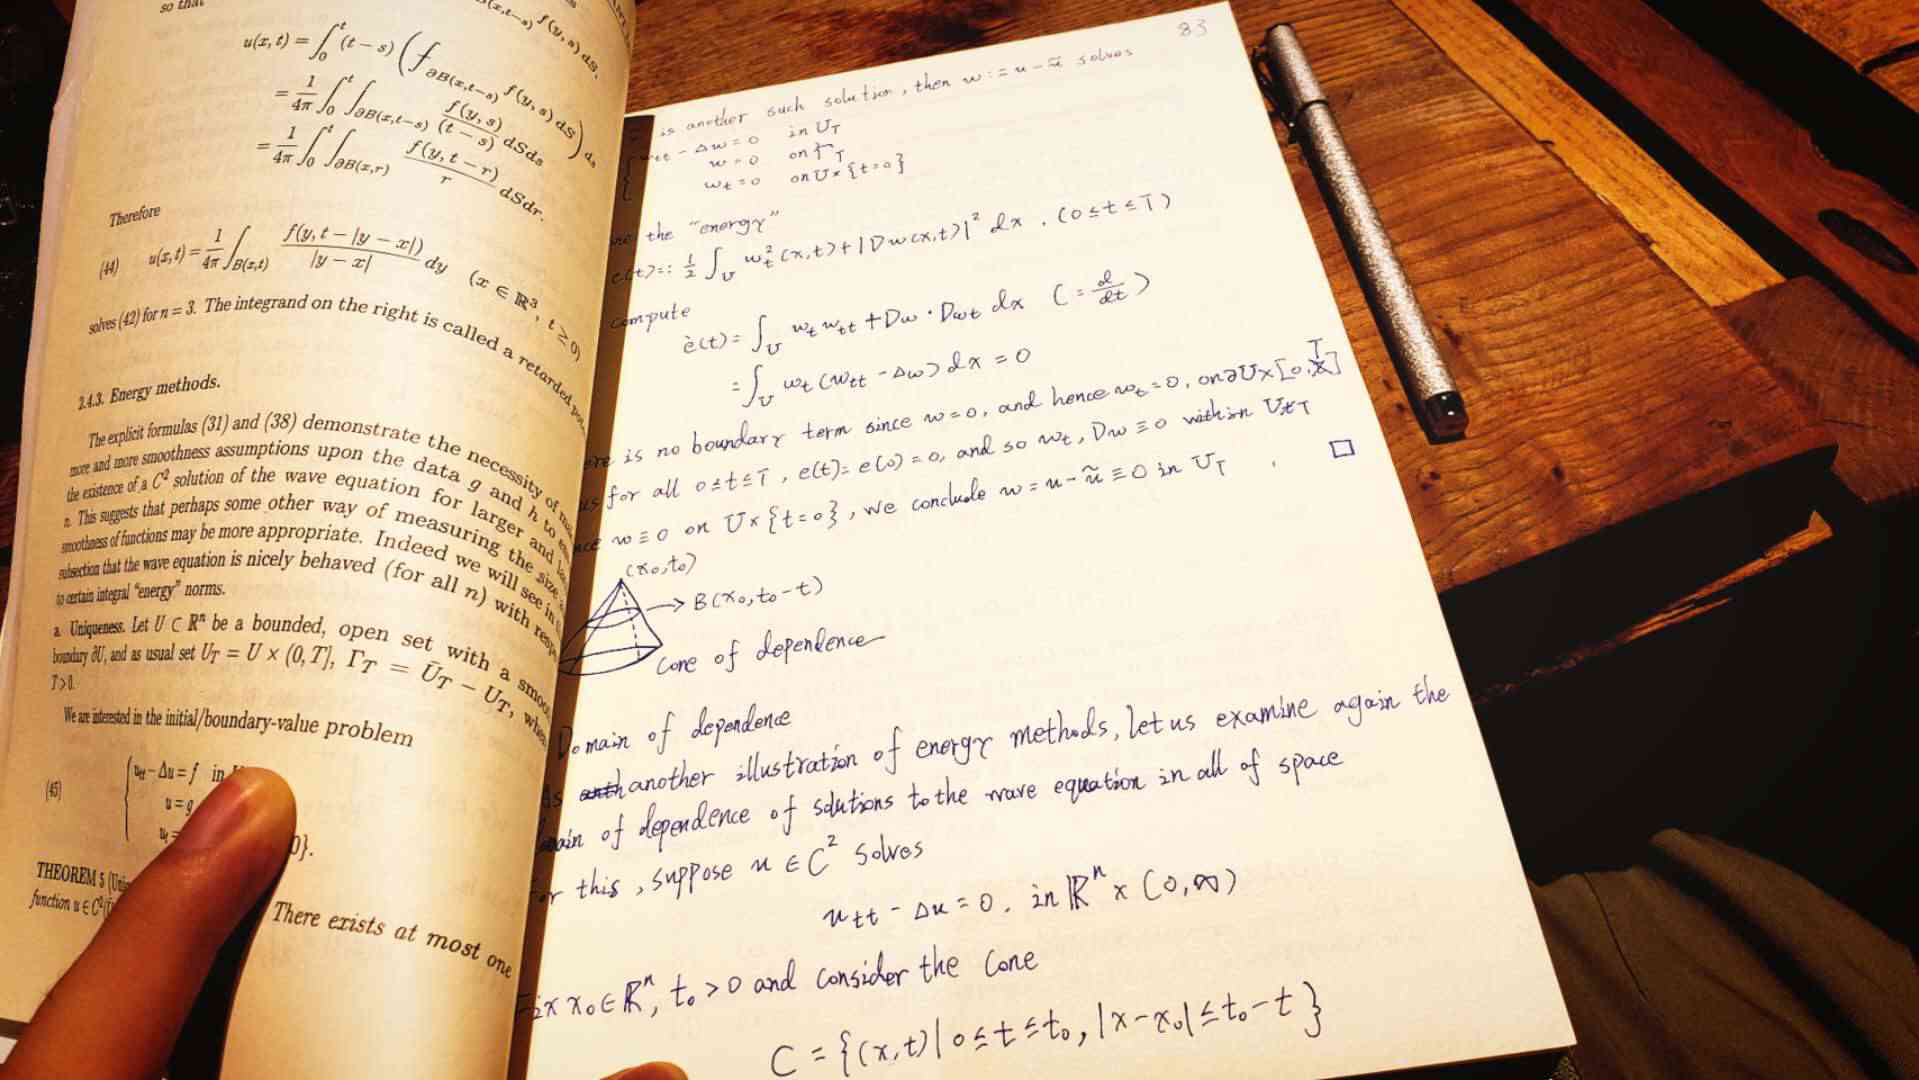 so that
u(x, t) = ∫₀ᵗ (t − s) (⨍_{∂B(x,t−s)} f(y, s) dS) ds
= 1/4π ∫₀ᵗ ∫_{∂B(x,t−s)} f(y, s)/(t − s) dSds
= 1/4π ∫₀ᵗ ∫_{∂B(x,r)} f(y, t − r)/r dSdr.
Therefore
(44) u(x, t) = 1/4π ∫_{B(x,t)} f(y, t − |y − x|)/|y − x| dy (x ∈ ℝ³, t ≥ 0)
solves (42) for n = 3. The integrand on the right is called a retarded
2.4.3. Energy methods.
The explicit formulas (31) and (38) demonstrate the necessity of
more and more smoothness assumptions upon the data g and h to
the existence of a C² solution of the wave equation for larger and
n. This suggests that perhaps some other way of measuring the size
smoothness of functions may be more appropriate. Indeed we will see in
subsection that the wave equation is nicely behaved (for all n) with
to certain integral “energy” norms.
a. Uniqueness. Let U ⊂ ℝⁿ be a bounded, open set with a
boundary ∂U, and as usual set U_T = U × (0, T], Γ_T = Ū_T − U_T,
T > 0.
We are interested in the initial/boundary-value problem
(45) u_tt − Δu = f in
u = g
u_t =
0}.
THEOREM 5
function u ∈ C²
There exists at most one
83
is another such solution, then w := u − ũ solves
w_tt − Δw = 0 in U_T
w = 0 on Γ_T
w_t = 0 on U × {t=0}
the "energy"
e(t) =: 1/2 ∫_U w_t²(x,t) + |Dw(x,t)|² dx . (0 ≤ t ≤ T)
compute
ė(t) = ∫_U w_t w_tt + Dw · Dw_t dx (˙ = d/dt)
= ∫_U w_t (w_tt − Δw) dx = 0
is no boundary term since w = 0, and hence w_t = 0, on ∂U × [0, T]
for all 0 ≤ t ≤ T, e(t) = e(0) = 0, and so w_t, Dw ≡ 0 within U_T
w ≡ 0 on U × {t=0}, we conclude w = u − ũ ≡ 0 in U_T . □
(x₀, t₀)
→ B(x₀, t₀ − t)
Cone of dependence
Domain of dependence
As another illustration of energy methods, let us examine again the
of dependence of solutions to the wave equation in all of space
For this, suppose u ∈ C² solves
u_tt − Δu = 0. in ℝⁿ × (0, ∞)
Fix x₀ ∈ ℝⁿ, t₀ > 0 and consider the cone
C = {(x,t) | 0 ≤ t ≤ t₀, |x − x₀| ≤ t₀ − t}